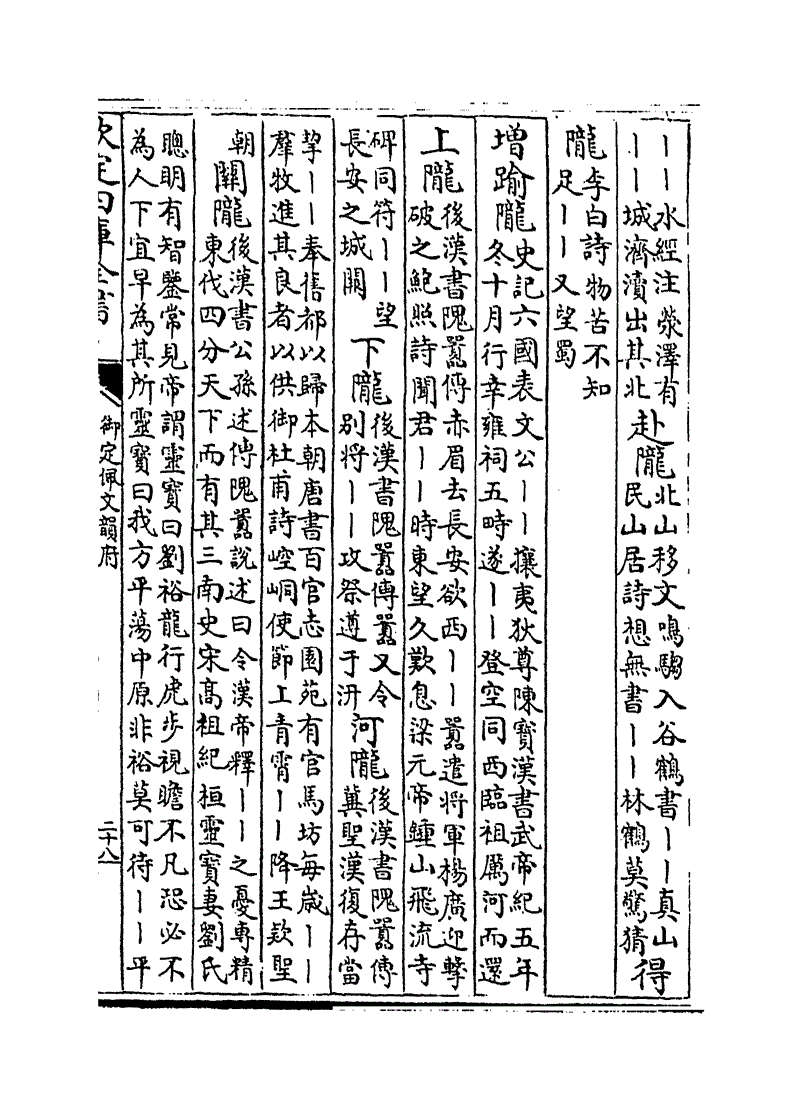 丨丨水經注滎澤有
丨丨城濟瀆出其北
赴隴
北山移文鳴騶入谷鶴書丨丨真山
民山居詩想無書丨丨林鶴莫驚猜
得
隴
李白詩物苦不知
足丨丨又望蜀
增踰隴
史記六國表文公丨丨攘夷狄尊陳寶漢書武帝紀五年
冬十月行幸雍祠五畤遂丨丨登空同西臨祖厲河而還
上隴
後漢書隗囂傳赤眉去長安欲西丨丨囂遣將軍楊廣迎擊
破之鮑照詩聞君丨丨時東望久歎息梁元帝鍾山飛流寺
碑同符丨丨望
長安之城闕
下隴
後漢書隗囂傳囂又令
别將丨丨攻祭遵于汧
河隴
後漢書隗囂傳
冀聖漢復存當
挈丨丨奉舊都以歸本朝唐書百官志園苑有官馬坊每歲丨丨
羣牧進其良者以供御杜甫詩崆峒使節上青霄丨丨降王欵聖
朝
關隴
後漢書公孫述傳隗囂說述曰令漢帝釋丨丨之憂專精
東伐四分天下而有其三南史宋髙祖紀桓靈寶妻劉氏
聰明有智鑒常見帝謂靈寶曰劉裕龍行虎步視瞻不凡恐必不
為人下宜早為其所靈寶曰我方平蕩中原非裕莫可待丨丨平
欽定四庫全書
御定佩文韻府
二十八